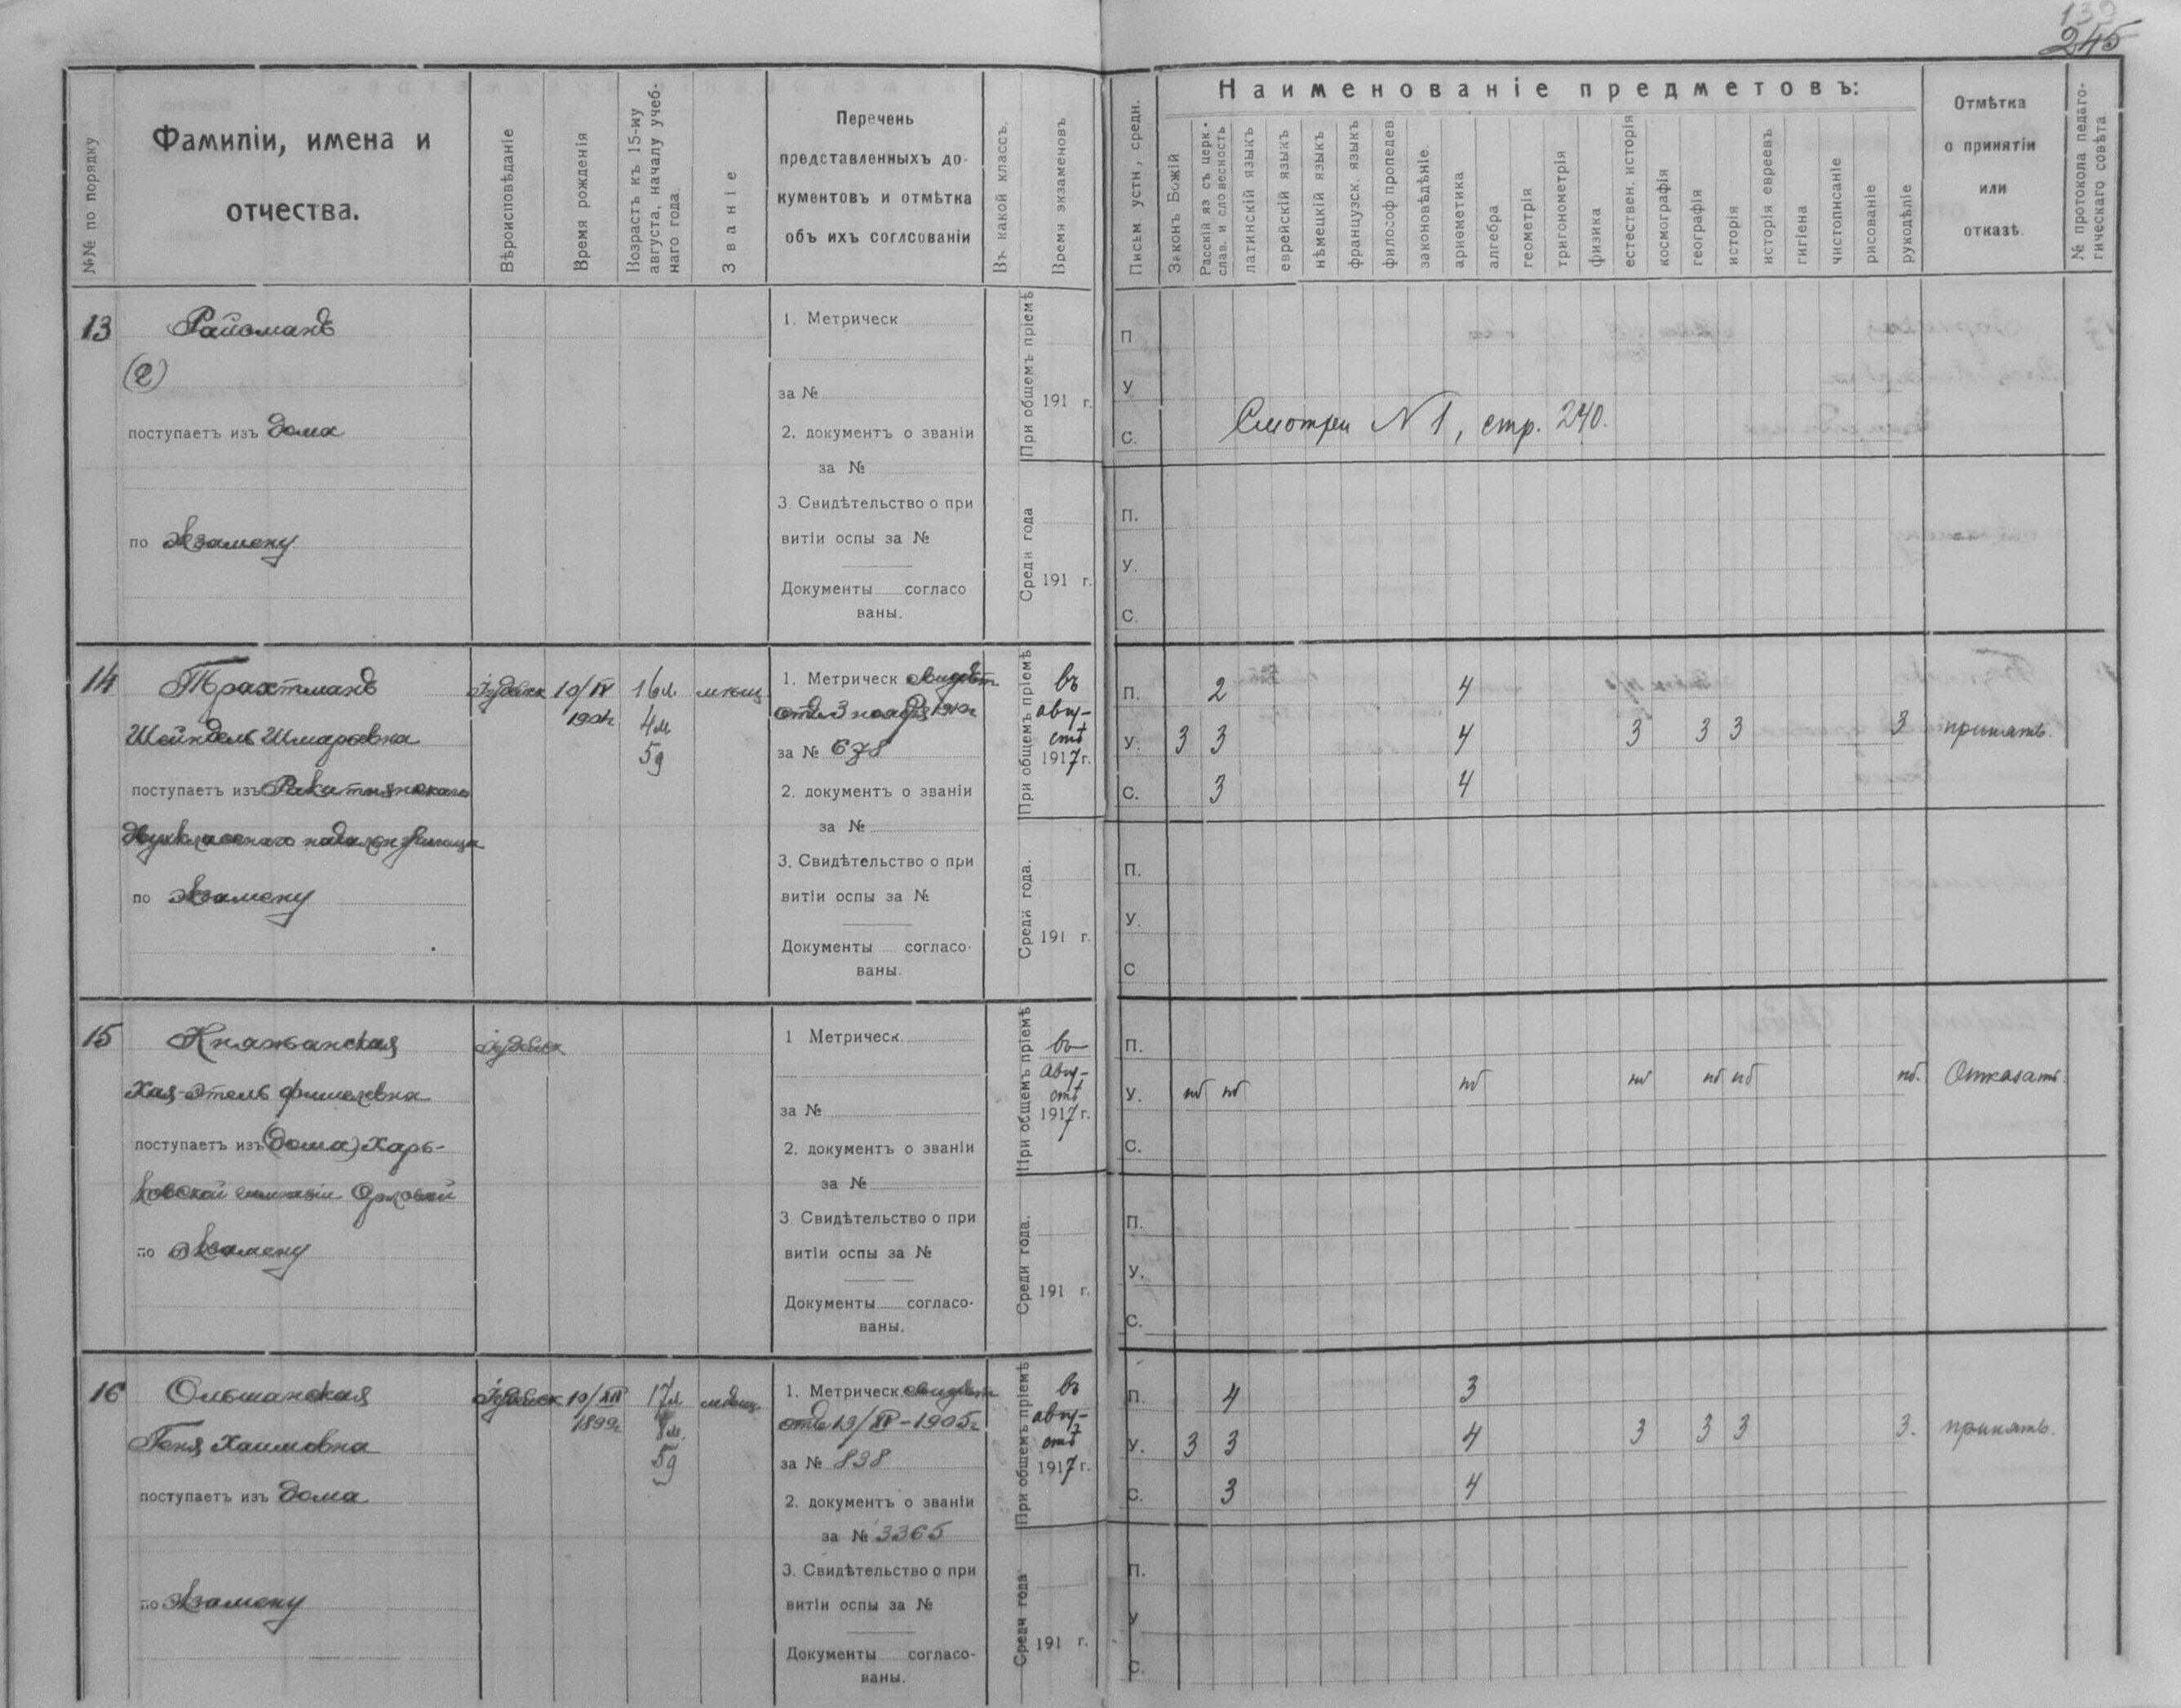 139
245
№№ по порядку
Фамиліи, имена и
отчества.
Вѣроисповѣданіе
Время рожденія
Возрастъ къ 15-му
августа, началу учеб-
наго года.
Званіе
Перечень
представленныхъ до-
кументовъ и отмѣтка
объ ихъ соглсованіи
Въ какой классъ.
Время экзаменовъ
Письм устн, средн.
Наименованіе предметовъ:
Законъ Божій
Расскій яз съ церк.-
слав. и словесность
латинскій языкъ
еврейскій языкъ
нѣмецкій языкъ
французск. языкъ
философ пропедев
законовѣдѣніе.
ариѳметика
алгебра
геометрія
тригонометрія
физика
естествен. исторія
космографія
географія
исторія
исторія евреевъ
гигіена
чистописаніе
рисованіе
рукодѣліе
Отмѣтка
о принятіи
или
отказѣ.
№ протокола педаго-
гическаго совѣта
13
Райзманъ
(2)
поступаетъ изъ дома
по экзамену
1. Метрическ
за №
2. документъ о званіи
за №
3 Свидѣтельство о при
витіи оспы за №
Документы согласо
ваны.
При общемъ пріемѣ
191 г.
Среди года
191 г.
П
У
С.
Смотри N 1, стр. 240.
П.
У.
С.
14
Трахтманъ
Шейндель Шмарьевна
поступаетъ изъ Ракитнянскаго
двухкласснаго училища
по экзамену
Іудейск
10/IV
16 л
4 м
5 д
мѣщ
1. Метрическ свидѣт.
за № 678
2. документъ о званіи
за №
3. Свидѣтельство о при
витіи оспы за №
Документы согласо-
ваны.
При общемъ пріемѣ
въ
авгу-
стѣ
1917 г.
Среди года.
191 г.
П. 2 4
У. 3 3 4 3 3 3 3 принять.
С. 3 4
П.
У.
С
15
Княжанская
Хая-Этель Фишелевна
поступаетъ изъ (дома) Харь-
ковской гимназіи Орловой
по экзамену
Іудейск
1 Метрическ.
за №
2. документъ о званіи
за №
3. Свидѣтельство о при
витіи оспы за №
Документы согласо-
ваны.
При общемъ пріемѣ
въ
авгу-
стѣ
1917 г.
Среди года.
191 г.
П.
У. нб нб нб нб нб нб нб. Отказать.
С.
П.
У.
С.
16
Ольшанская
Геня Хаимовна
поступаетъ изъ дома
по экзамену
Іудейск
10/XII
1899 г.
17 л
8 м.
5 д
мѣщ.
1. Метрическ. свидѣт
за № 838
2. документъ о званіи
за № 3365
3. Свидѣтельство о при
витіи оспы за №
Документы согласо-
ваны.
При общемъ пріемѣ
въ
авгу-
стѣ
1917 г.
Среди года
191 г.
П. 4 3
У. 3 3 4 3 3 3 3. принять.
С. 3 4
П.
У
С.